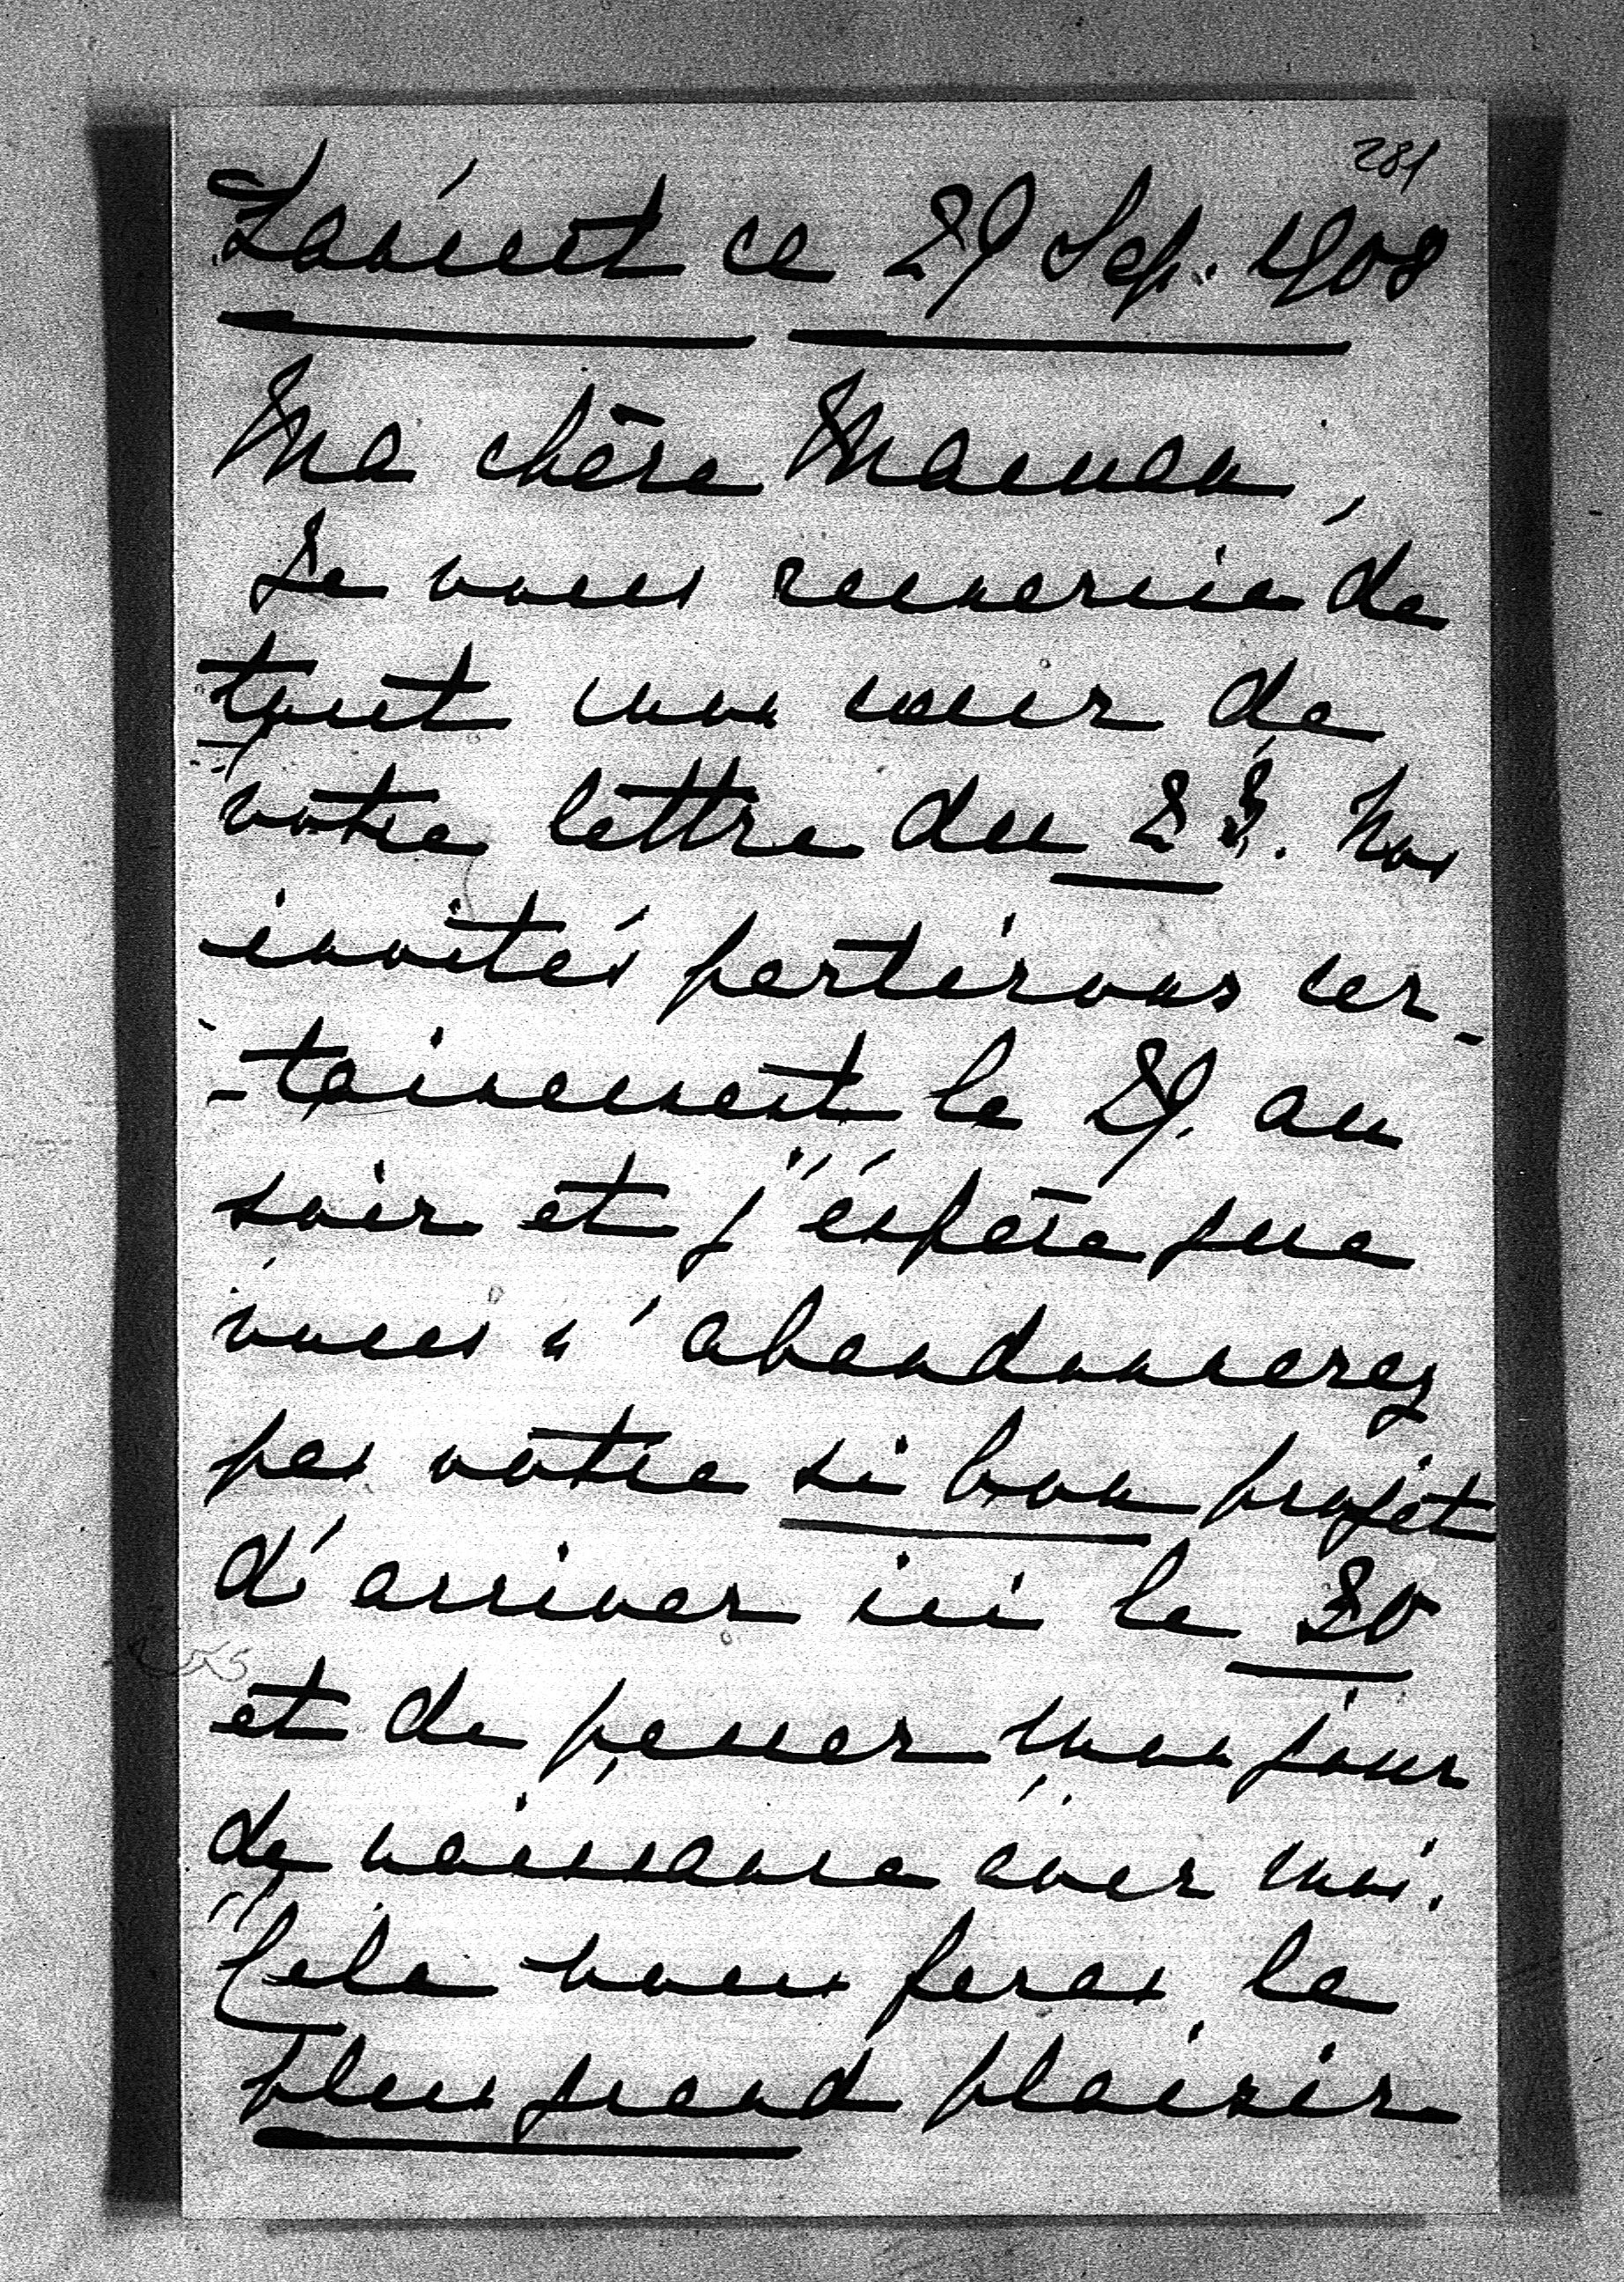 281
Laeken ce 29 Sep. 1908
Ma chère Maman,
Je vous remercie de
tout mon cœur de
votre lettre du 23. Nos
invités partirons cer-
-tainement le 29. au
soir et j'éspère que
vous n'abandonnerez
pas votre si bon projet
d'arriver ici le 30
et de passer mon jour
de naissance avec moi.
Cela nous feras le
plus grand plaisir